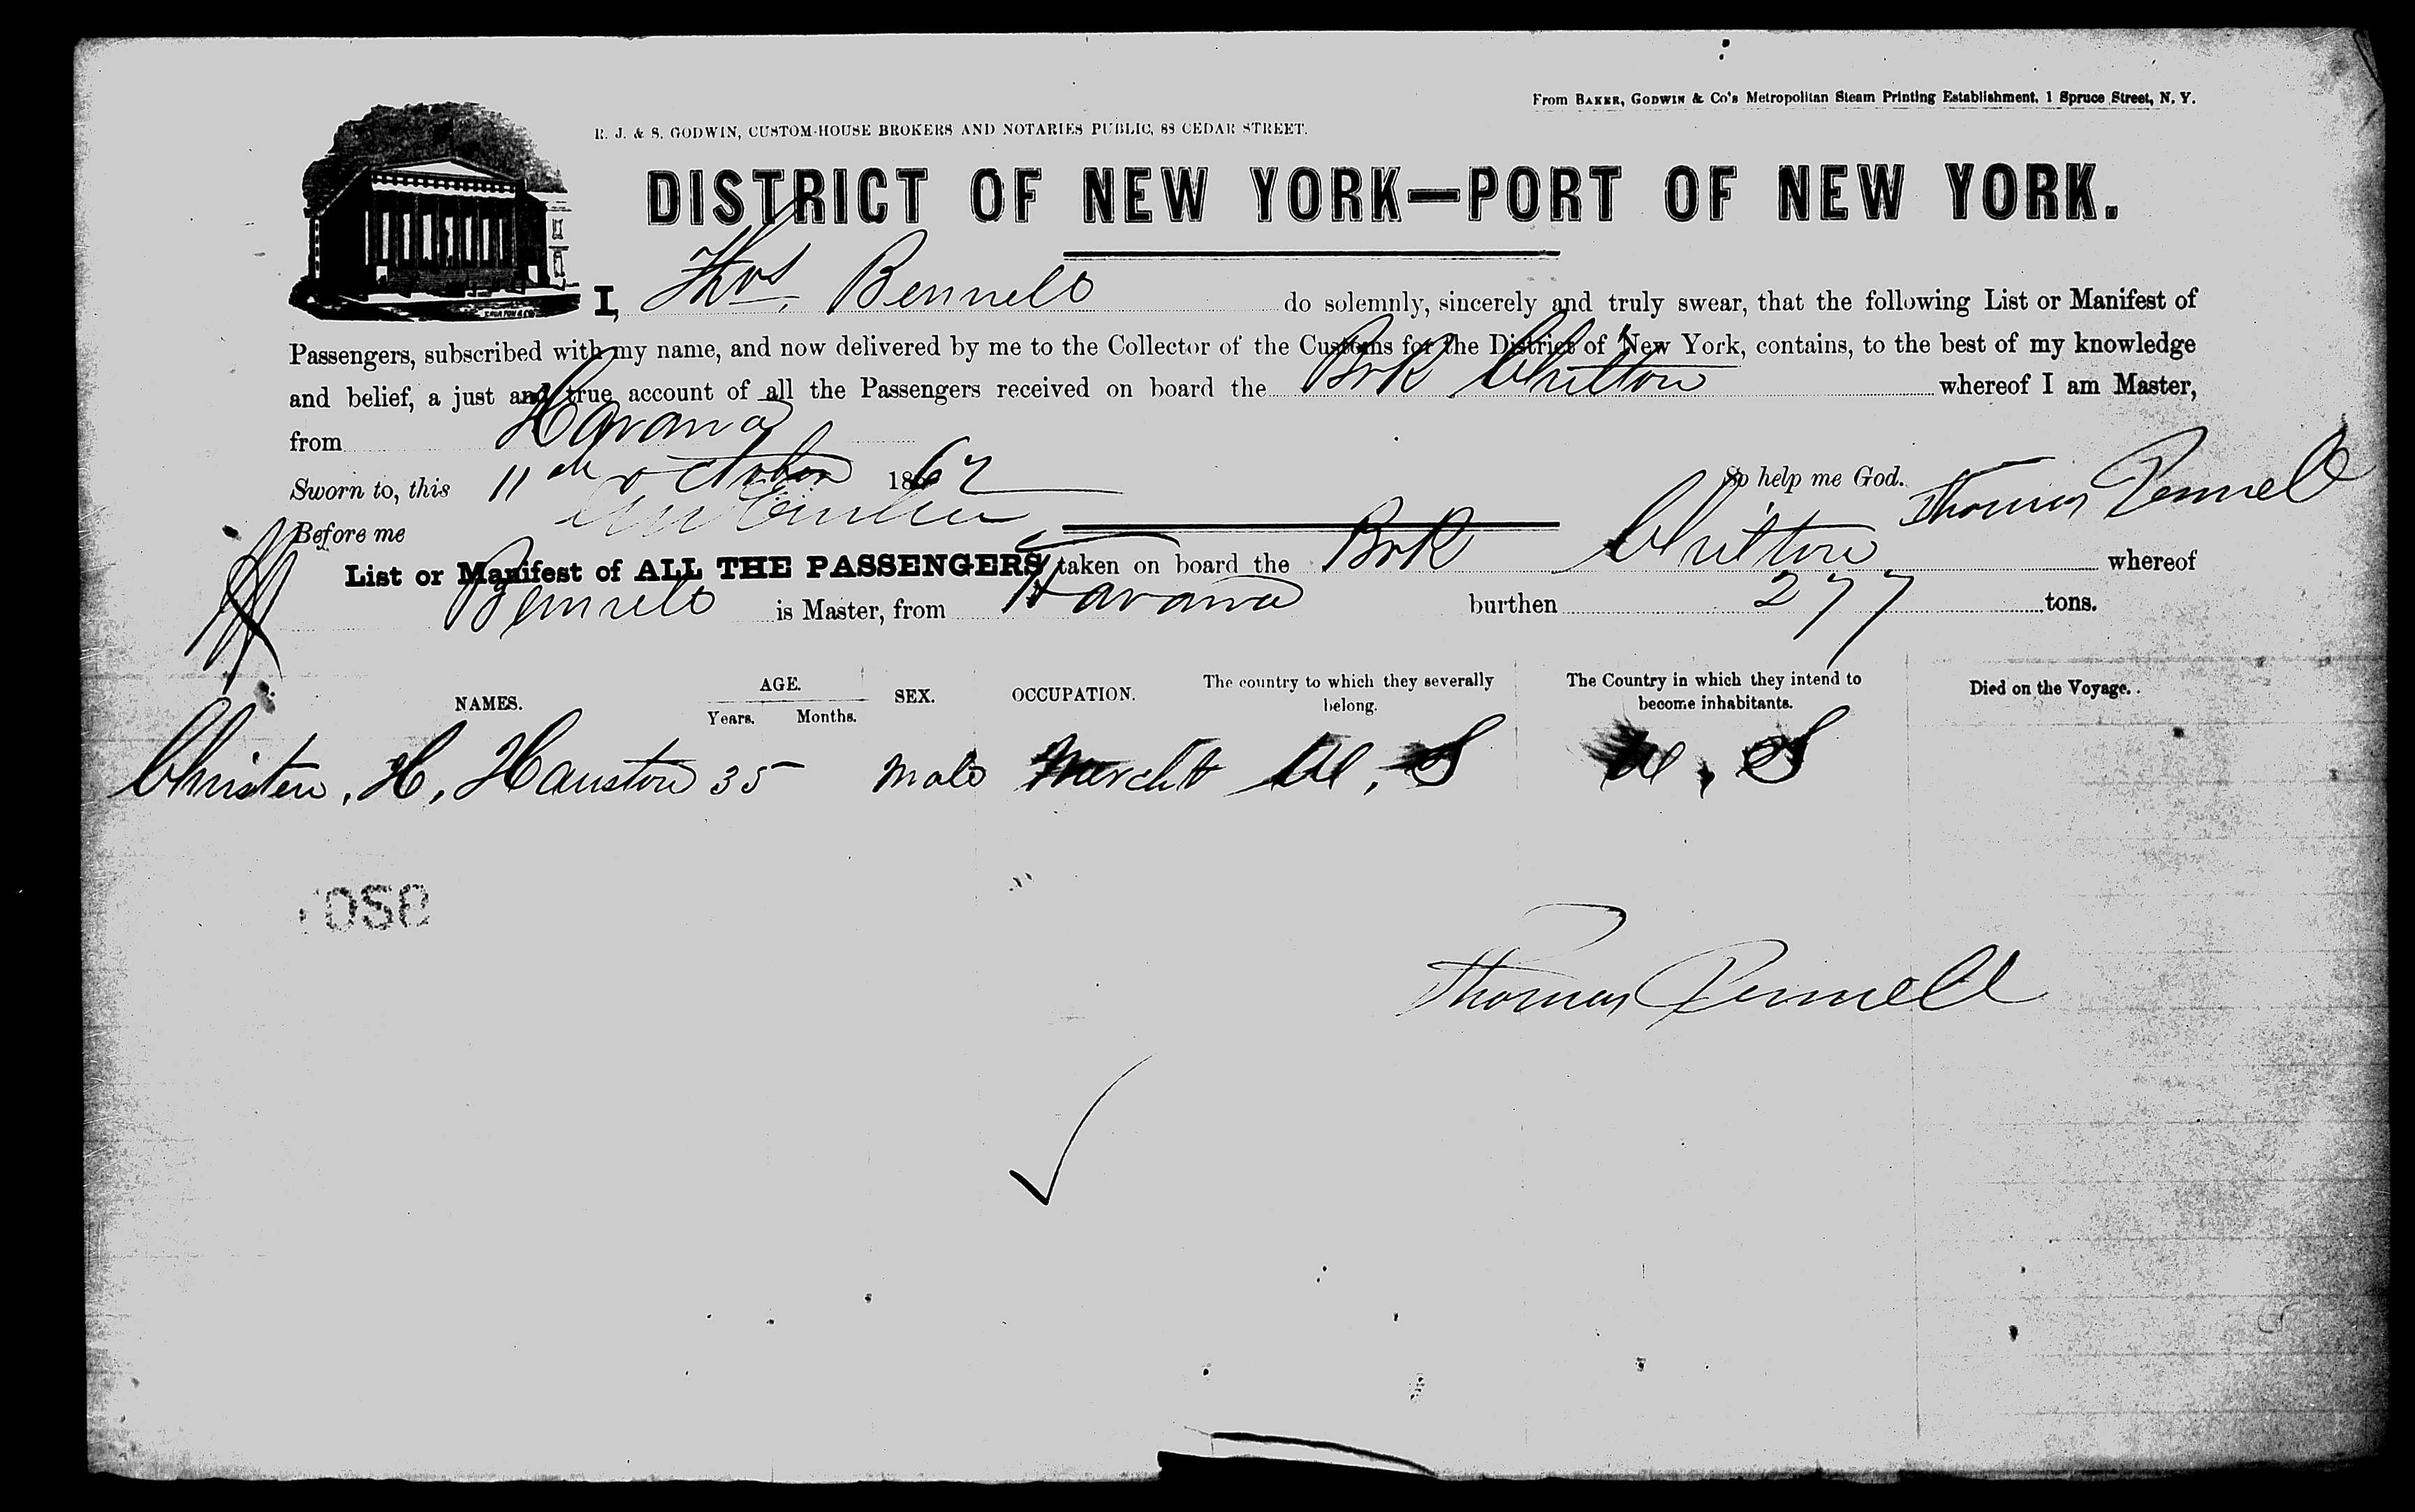 From BAKER, GODWIN & Co's Metropolitan Steam Printing Establishment, 1 Spruce Street, N. Y.
R. J. & S. GODWIN, CUSTOM-HOUSE BROKERS AND NOTARIES PUBLIC, 88 CEDAR STREET.
DISTRICT OF NEW YORK—PORT OF NEW YORK.
I, Thos. Pennell do solemnly, sincerely and truly swear, that the following List or Manifest of
Passengers, subscribed with my name, and now delivered by me to the Collector of the Customs for the District of New York, contains, to the best of my knowledge
and belief, a just and true account of all the Passengers received on board the Brk Chilton whereof I am Master,
from Havana
Sworn to, this 11th October 1862 So help me God. Thomas Pennell
Before me
List or Manifest of ALL THE PASSENGERS taken on board the Brk Chilton whereof
Pennell is Master, from Havana burthen 277 tons.
NAMES. AGE. Years. Months. SEX. OCCUPATION. The country to which they severally belong. The Country in which they intend to become inhabitants. Died on the Voyage.
H, Hauston 35 Male Mercht U, S U, S
Thomas Pennell